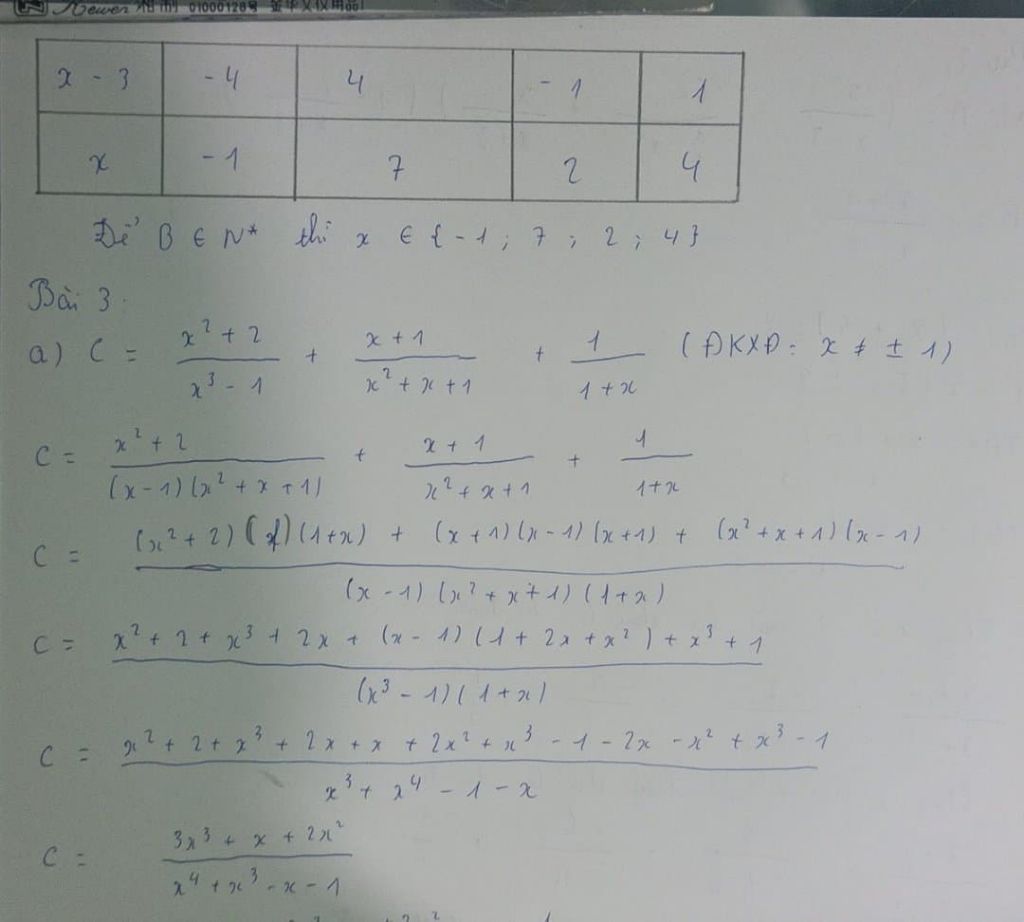 01000128号
x - 3 | -4 | 4 | -1 | 1
x | -1 | 7 | 2 | 4
Để B ∈ N* thì x ∈ {-1 ; 7 ; 2 ; 4}
Bài 3
a) C = (x² + 2)/(x³ - 1) + (x + 1)/(x² + x + 1) + 1/(1 + x) (ĐKXĐ: x ≠ ± 1)
C = (x² + 2)/((x - 1)(x² + x + 1)) + (x + 1)/(x² + x + 1) + 1/(1 + x)
C = ((x² + 2)(1 + x) + (x + 1)(x - 1)(x + 1) + (x² + x + 1)(x - 1))/((x - 1)(x² + x + 1)(1 + x))
C = (x² + 2 + x³ + 2x + (x - 1)(1 + 2x + x²) + x³ + 1)/((x³ - 1)(1 + x))
C = (x² + 2 + x³ + 2x + x + 2x² + x³ - 1 - 2x - x² + x³ - 1)/(x³ + x⁴ - 1 - x)
C = (3x³ + x + 2x²)/(x⁴ + x³ - x - 1)